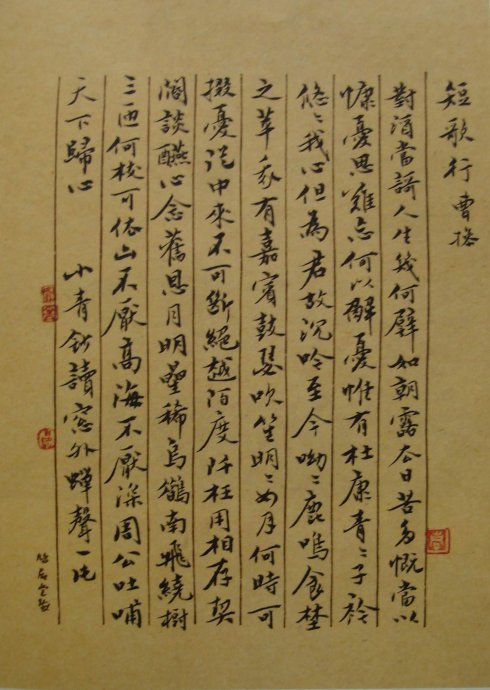 短歌行 曹操
對酒當歌人生幾何譬如朝露去日苦多慨當以
慷憂思難忘何以解憂惟有杜康青〻子衿
悠〻我心但為君故沉吟至今呦〻鹿鳴食埜
之苹我有嘉賓鼓瑟吹笙明〻如月何時可
掇憂從中來不可斷絕越陌度阡枉用相存契
闊談讌心念舊恩月明星稀烏鵲南飛繞樹
三匝何枝可依山不厭高海不厭深周公吐哺
天下歸心 小青 讀窓外蟬聲一片